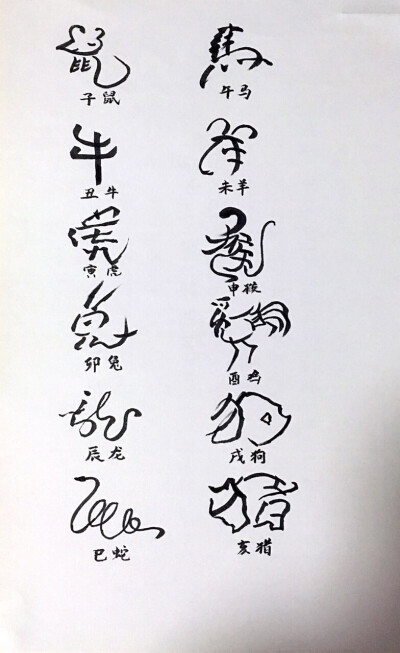 鼠
子鼠
牛
丑牛
虎
寅虎
兔
卯兔
龍
辰龙
蛇
巳蛇
馬
午马
羊
未羊
猴
申猴
鸡
酉鸡
狗
戌狗
猪
亥猪